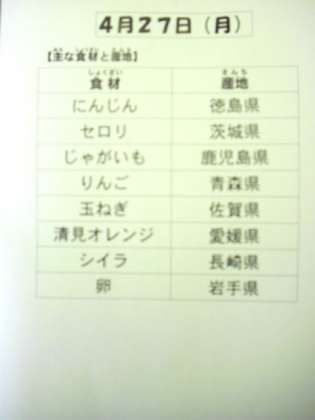 4月27日(月)
【主な食材と産地】
食材 産地
にんじん 徳島県
セロリ 茨城県
じゃがいも 鹿児島県
りんご 青森県
玉ねぎ 佐賀県
清見オレンジ 愛媛県
シイラ 長崎県
卵 岩手県